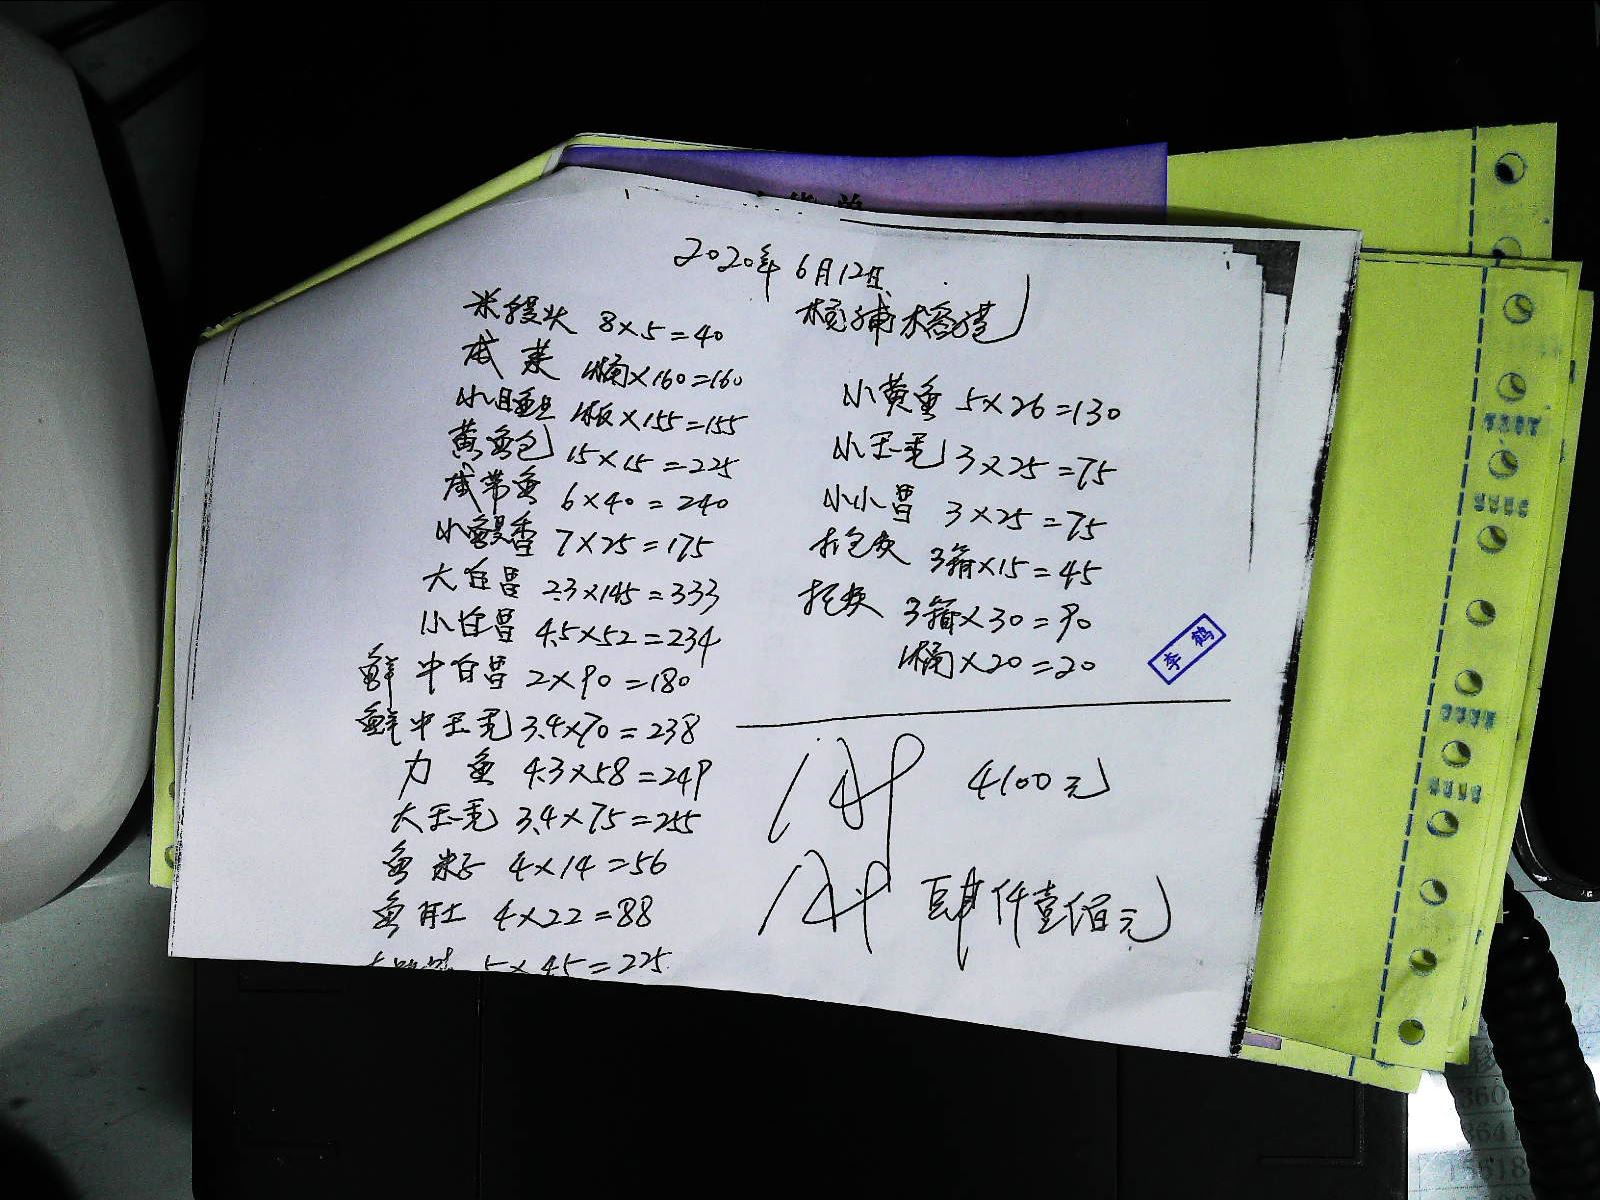 2020年6月12日
米馒头 8×5=40
咸菜 1桶×160=160
小目鱼旦 1板×155=155
黄鱼包 15×15=225
咸带鱼 6×40=240
小鳗香 7×25=175
大白昌 2.3×145=333
小白昌 4.5×52=234
鲜中白昌 2×90=180
鲜中玉毛 3.4×70=238
力鱼 4.3×58=249
大玉毛 3.4×75=255
鱼米子 4×14=56
鱼肚 4×22=88
5×45=225
小黄鱼 5×26=130
小玉毛 3×25=75
小小昌 3×25=75
3箱×15=45
3箱×30=90
1桶×20=20
李鹤
4100元
肆仟壹佰元